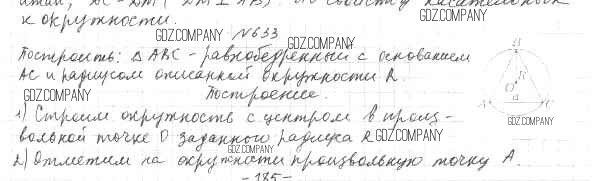 к окружности.
GDZ.COMPANY
GDZ.COMPANY №633
GDZ.COMPANY
Построить: △ABC - равнобедренный с основанием
AC и радиусом описанной окружности R.
GDZ.COMPANY
Построение.
B
R
O
a
A C
GDZ.COMPANY
1) Строим окружность с центром в произ-
вольной точке O заданного радиуса R GDZ.COMPANY
GDZ.COMPANY
2) Отметим на окружности произвольную точку A.
- 185 -